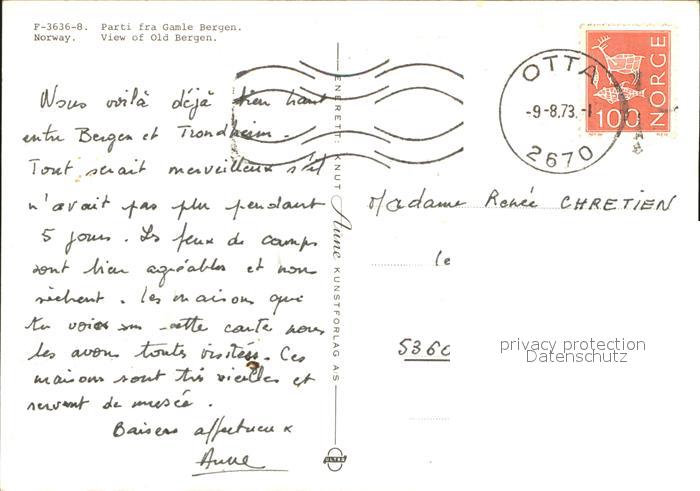 F-3636-8. Parti fra Gamle Bergen.
Norway. View of Old Bergen.
Nous voilà déjà bien haut
entre Bergen et Trondheim.
Tout serait merveilleux s'il
n'avait pas plu pendant
5 jours. Les feux de camps
sont bien agréables et nous
sèchent. Les maisons que
tu vois sur cette carte nous
les avons toutes visitées. Ces
maisons sont très vieilles et
servent de musée.
Baisers affectueux
Anne
ENERETT: KNUT Aune KUNSTFORLAG A/S
ULTRA
OTTA
-9-8.73.-1
2670
NORGE
100
Madame Renée CHRETIEN
le
5360
privacy protection
Datenschutz